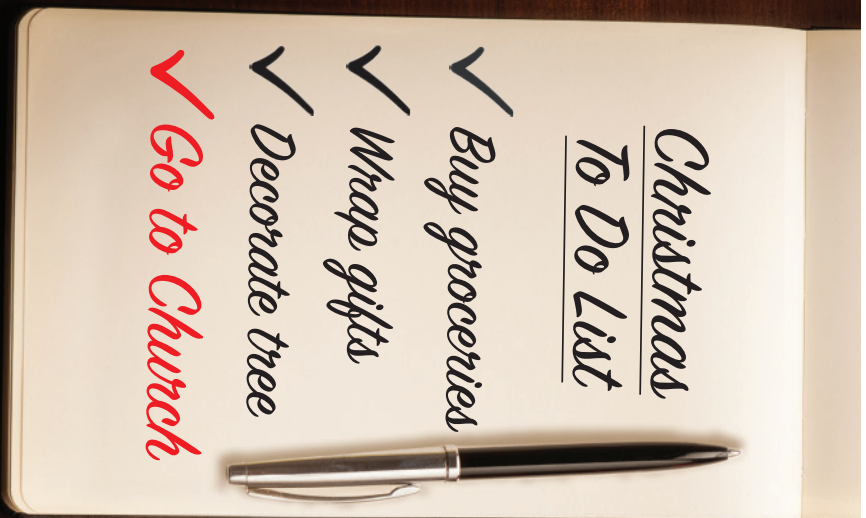 Christmas
To Do List
✓ Buy groceries
✓ Wrap gifts
✓ Decorate tree
✓ Go to Church